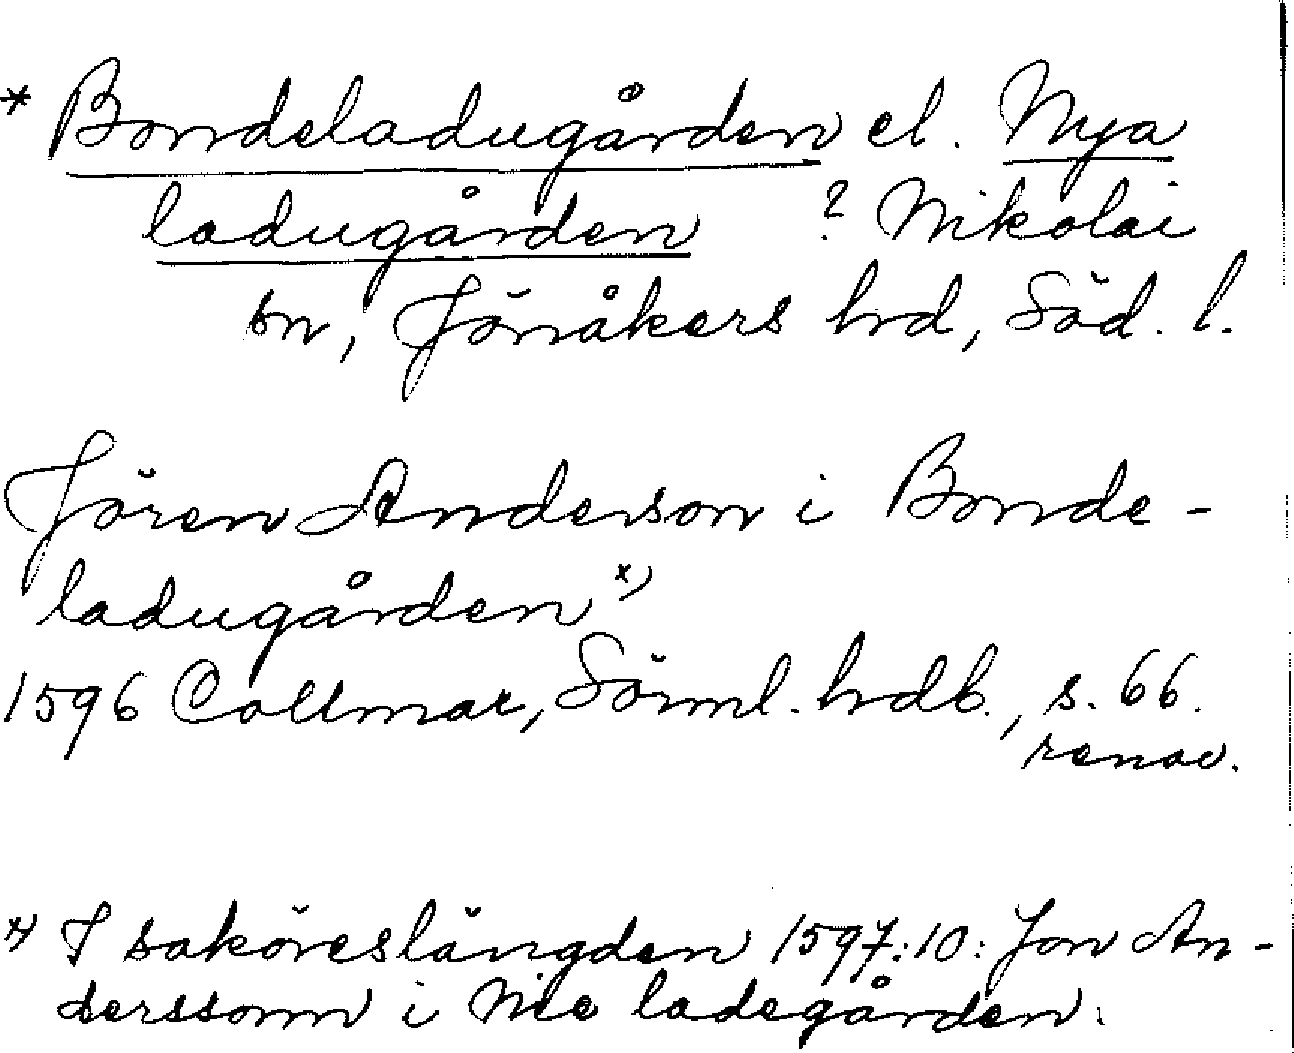 * Bondeladugården el. Nya
ladugården ? Nikolai
sn, Jönåkers hrd, Söd. l.
Jören Anderson i Bonde-
ladugården x)
1596 Collmar, Sörml. hdb., s. 66.
renov.
x) I saköreslängden 1597:10: Jon An-
derssonn i Nie ladegården.